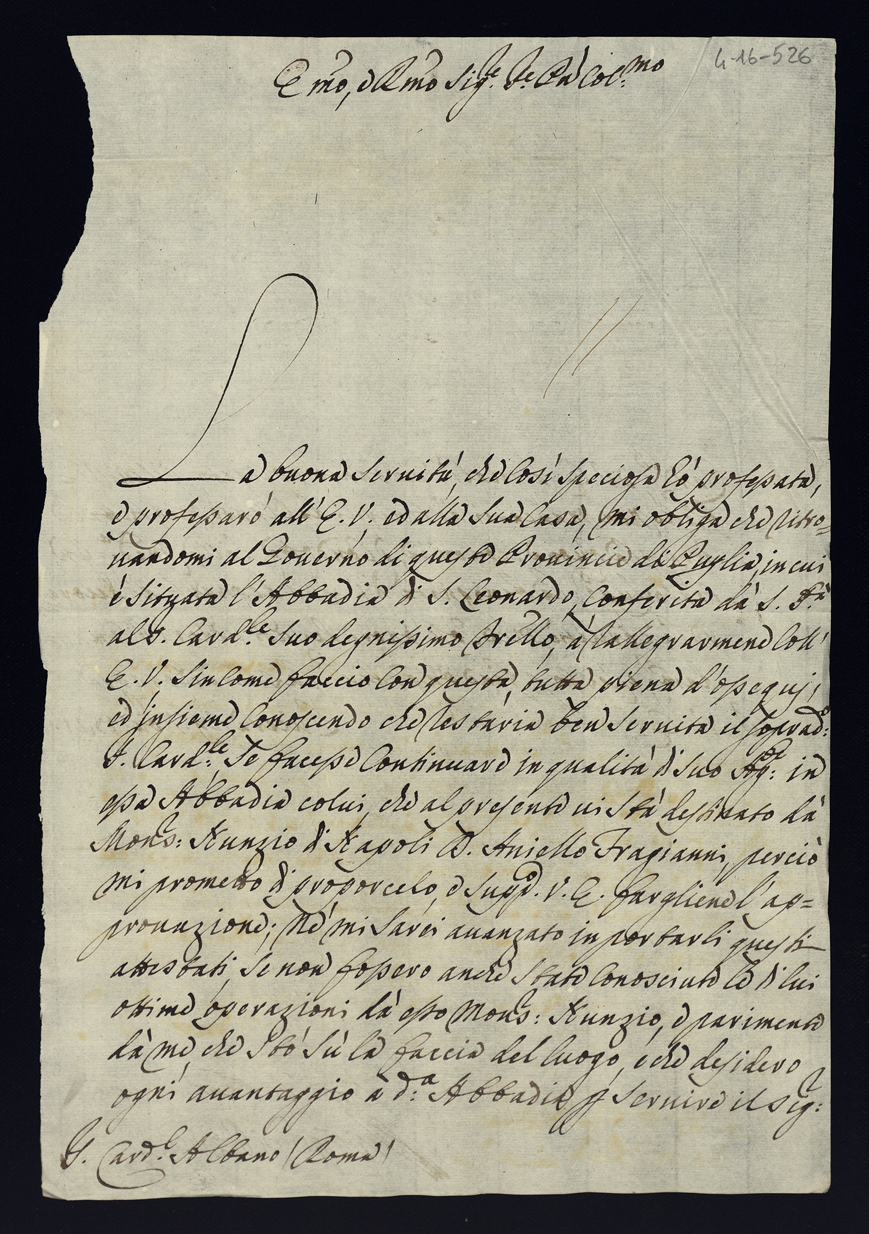 4-16-526
Emo, e Rmo Sig.re Pne Col.mo
La buona servitù, che così speciosa hò professata,
e professarò all' E. V. ed alla sua Casa, mi obliga che ritro=
uandomi al Governo di queste Provincie di Puglia, in cui
è situata l'Abbadia di S. Leonardo, conferita dà S. S.tà
al S. Card.le suo degnissimo Frello, à rallegrarmene coll'
E. V. sincome faccio con questa, tutta piena d'ossequij;
ed insieme conoscendo che restaria ben servita il soprad.o
S. Card.le se facesse continuare in qualità di suo Ag.te in
essa Abbadia colui, che al presente ui stà destinato dà
Mons.r Nunzio di Napoli D. Aniello Fragianni, perciò
mi prometto di proporcelo, e supp.o V. E. fargliene l'ap=
provazione; Nè mi sarei auanzato in portarli questi
attestati, se non fossero anche state conosciute le di lui
ottime operazioni dà esso Mons.r Nunzio, e parimente
dà me che stò sù la faccia del luogo, e che desidero
ogni auantaggio à d.a Abbadia p servire il Sig.r
S. Card.l Albano (Roma)